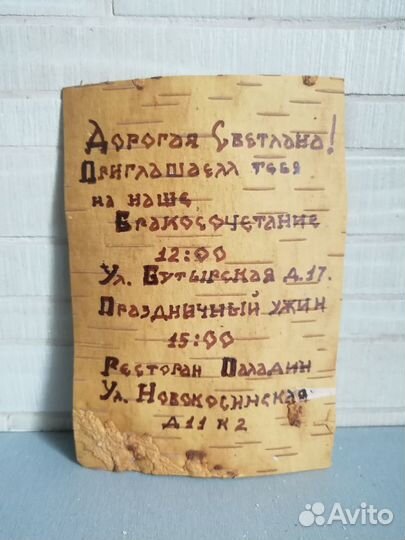 Дорогая Светлана!
Приглашаем тебя
на наше
Бракосочетание
12:00
Ул. Бутырская д.17.
Праздничный ужин
15:00
Ресторан Паладин
Ул. Новокосинская
д 11 к 2
Avito